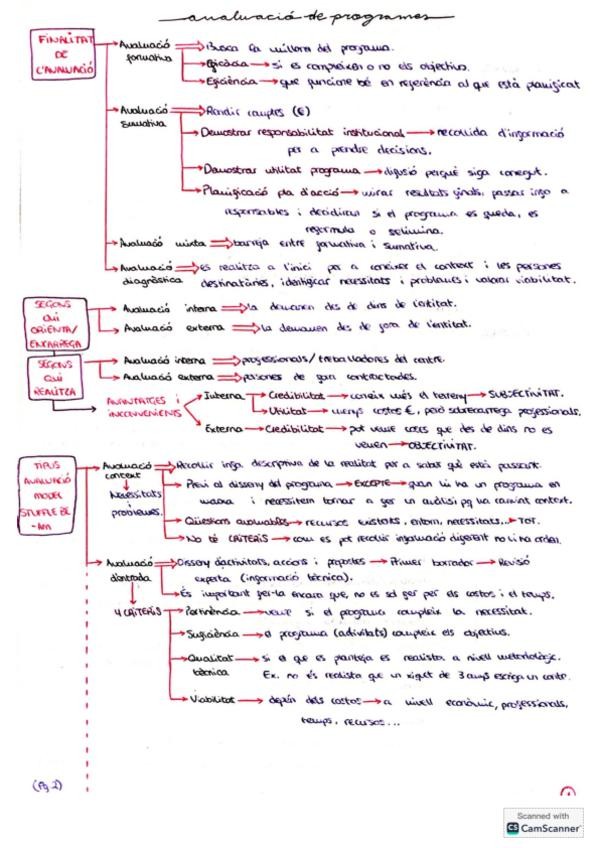 avaluació de programes
FINALITAT DE L'AVALUACIÓ
Avaluació formativa ⇒ Busca la millora del programa.
Eficàcia → si es compleixen o no els objectius.
Eficiència → que funcione bé en referència al que està planificat
Avaluació sumativa ⇒ Rendir comptes (€)
Demostrar responsabilitat institucional → recollida d'informació
per a prendre decisions.
Demostrar utilitat programa → difusió perquè siga conegut.
Planificació pla d'acció → mirar resultats finals, passar info a
responsables i decidiran si el programa es queda, es
reformula o s'elimina.
Avaluació mixta ⇒ barreja entre formativa i sumativa.
Avaluació diagnòstica ⇒ es realitza a l'inici per a conèixer el context i les persones
destinatàries, identificar necessitats i problemes i valorar viabilitat.
SEGONS QUI ORIENTA/ENCARREGA
Avaluació interna ⇒ la demanen des de dins de l'entitat.
Avaluació externa ⇒ la demanen des de fora de l'entitat.
SEGONS QUI REALITZA
Avaluació interna ⇒ professionals/treballadores del centre.
Avaluació externa ⇒ persones de fora contractades.
AVANTATGES I INCONVENIENTS
Interna → Credibilitat → coneix més el terreny → SUBJECTIVITAT.
Utilitat → menys costos €, però sobrecarrega professionals.
Externa → Credibilitat → pot veure coses que des de dins no es
veuen → OBJECTIVITAT.
TIPUS AVALUACIÓ MODEL STUFFLEBE-AM
Avaluació context ⇒ Recollir info. descriptiva de la realitat per a saber què està passant.
Necessitats i problemes.
Previ al disseny del programa → EXCEPTE → quan hi ha un programa en
marxa i necessitem tornar a fer un anàlisi pq ha canviat context.
Qüestions avaluables → recursos existents, entorn, necessitats... → TOT.
No té CRITERIS → com es pot recollir informació diferent no hi ha ordre.
Avaluació d'entrada ⇒ Disseny d'activitats, accions i propostes → Primer borrador → Revisió
experta (informació tècnica).
És important fer-la encara que, no es sol fer per els costos i el temps.
4 CRITERIS
Pertinència → veure si el programa compleix la necessitat.
Suficiència → el programa (activitats) compleix els objectius.
Qualitat tècnica → si el que es planteja es realista a nivell metodològic.
Ex. no és realista que un xiquet de 3 anys escriga un conte.
Viabilitat → depén dels costos → a nivell econòmic, professionals,
temps, recursos...
(Pg 2)
1
Scanned with
CS CamScanner